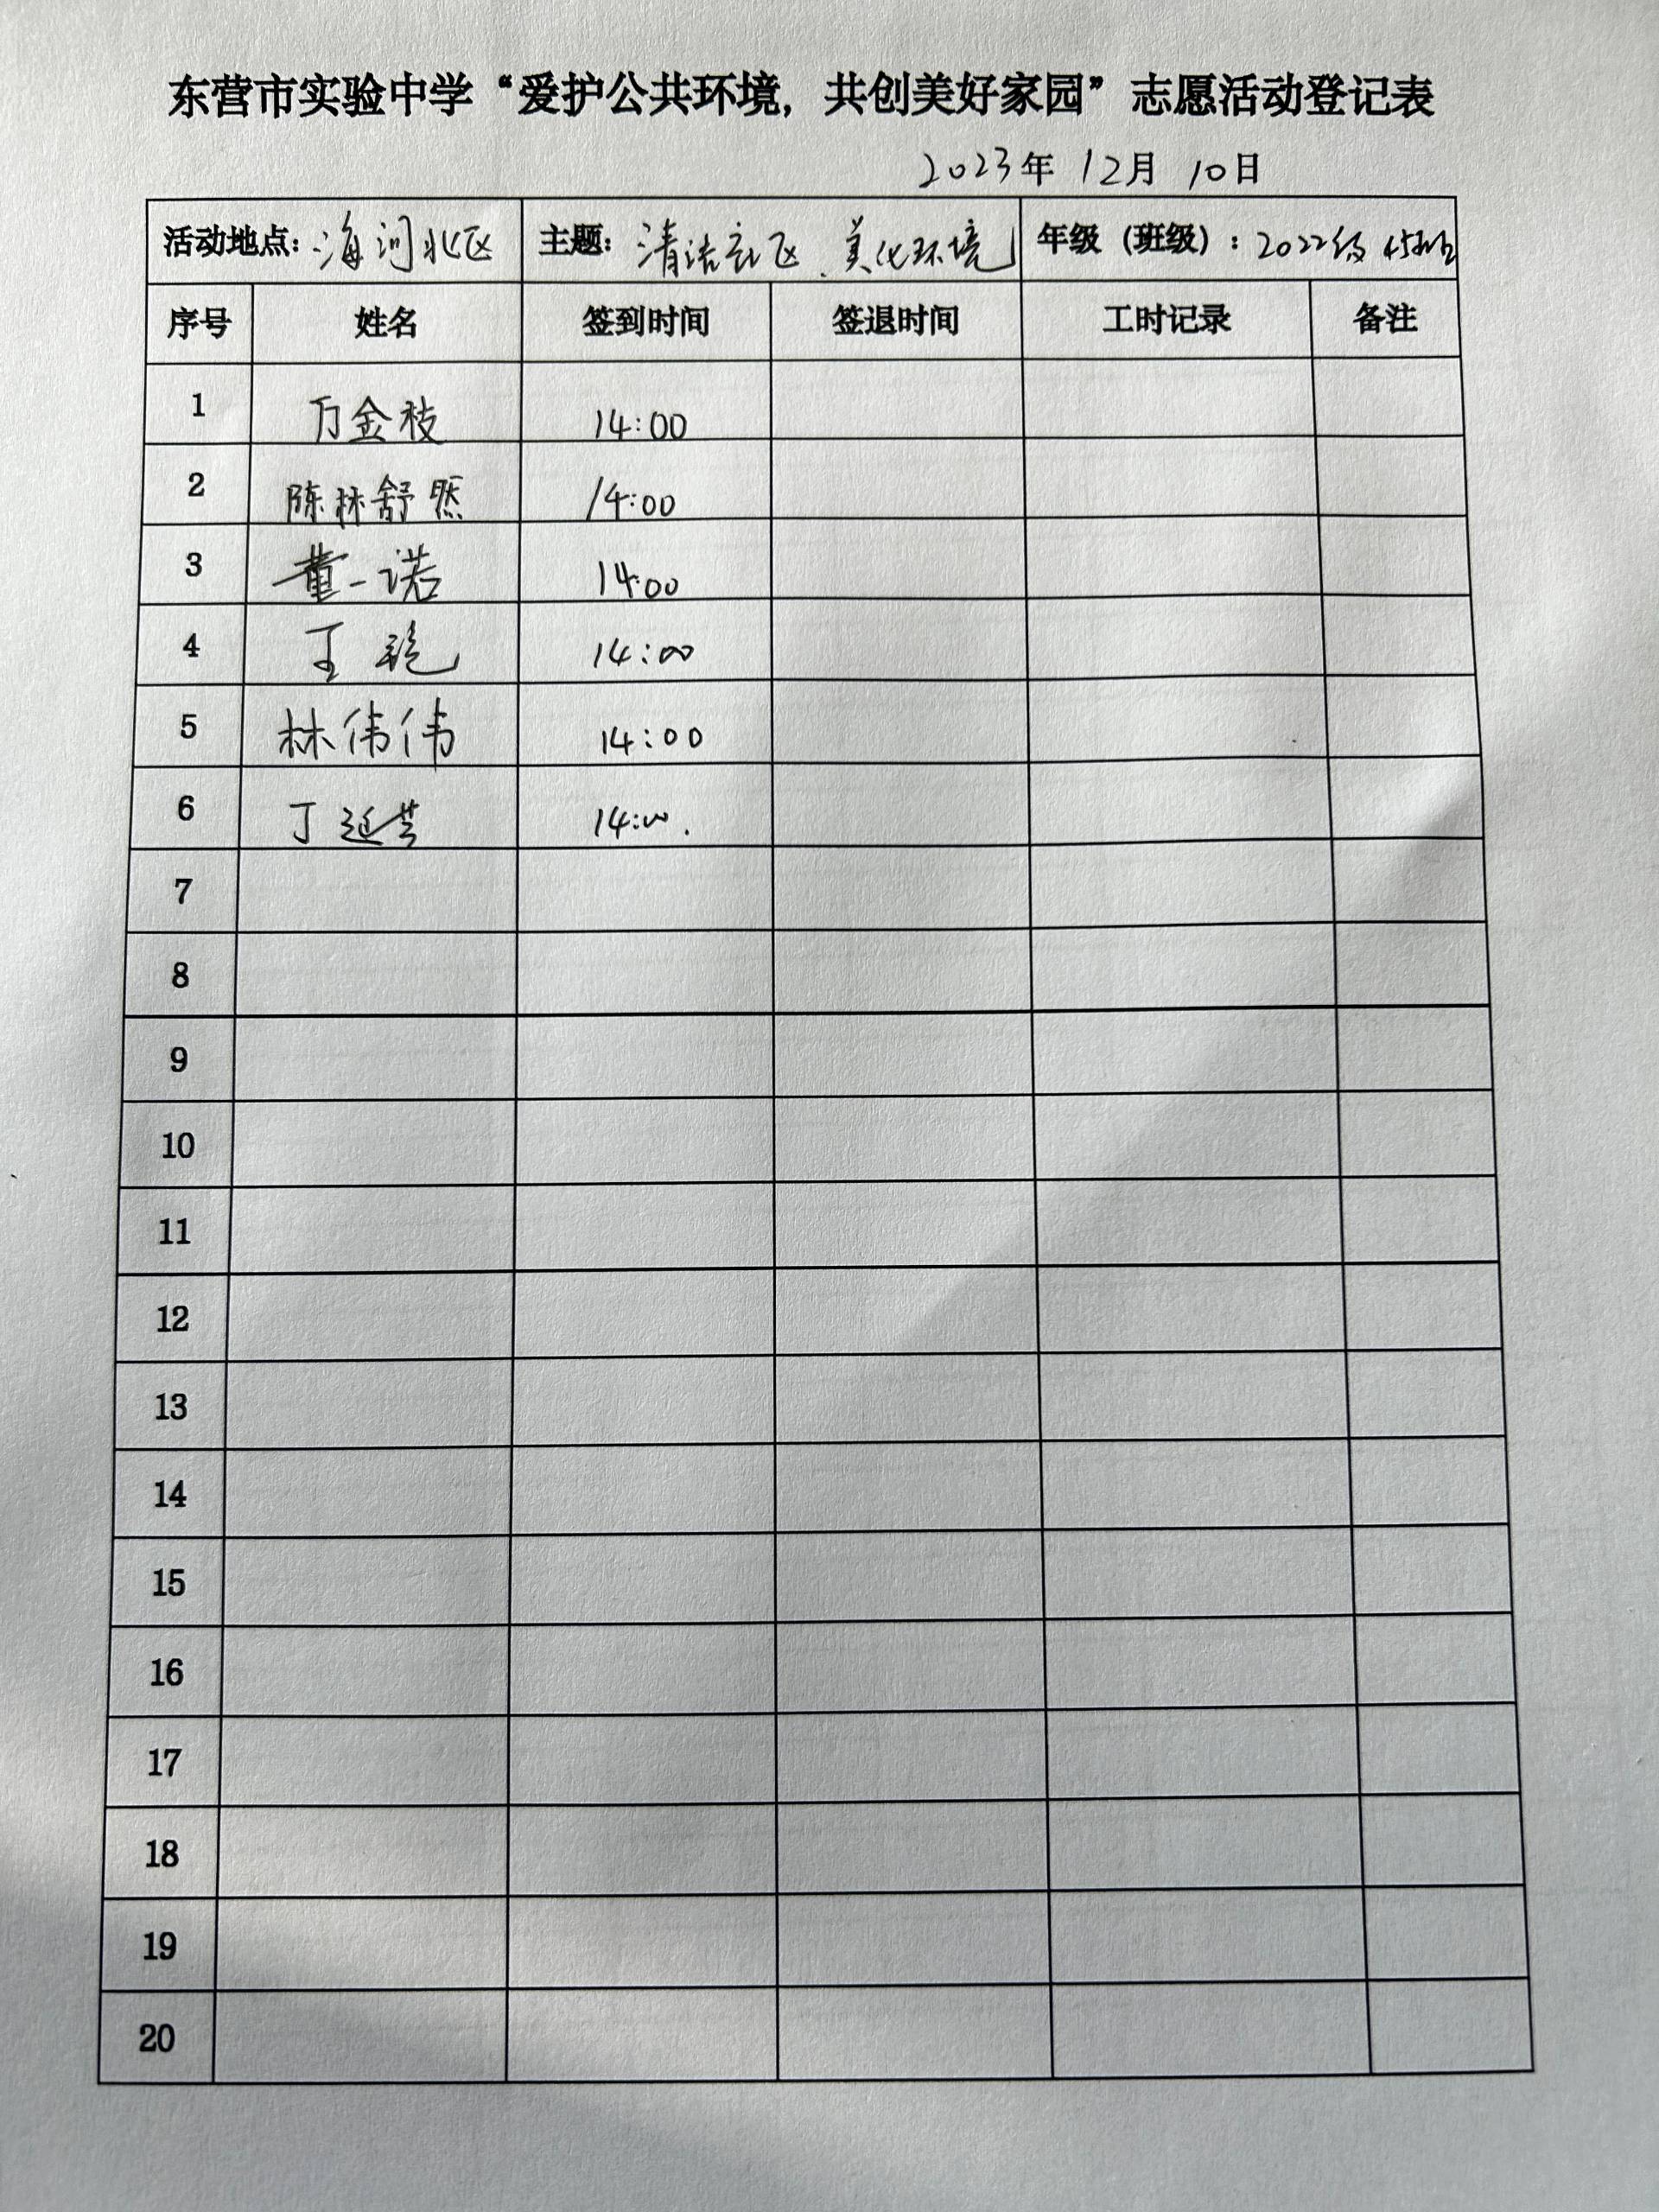 东营市实验中学“爱护公共环境，共创美好家园”志愿活动登记表
2023年 12月 10日
活动地点：海河北区 主题：清洁社区、美化环境 年级（班级）：2022级
序号 姓名 签到时间 签退时间 工时记录 备注
1 万金枝 14:00
2 陈林舒然 14:00
3 董一诺 14:00
4 王艳 14:00
5 林伟伟 14:00
6 丁延 14:00
7
8
9
10
11
12
13
14
15
16
17
18
19
20